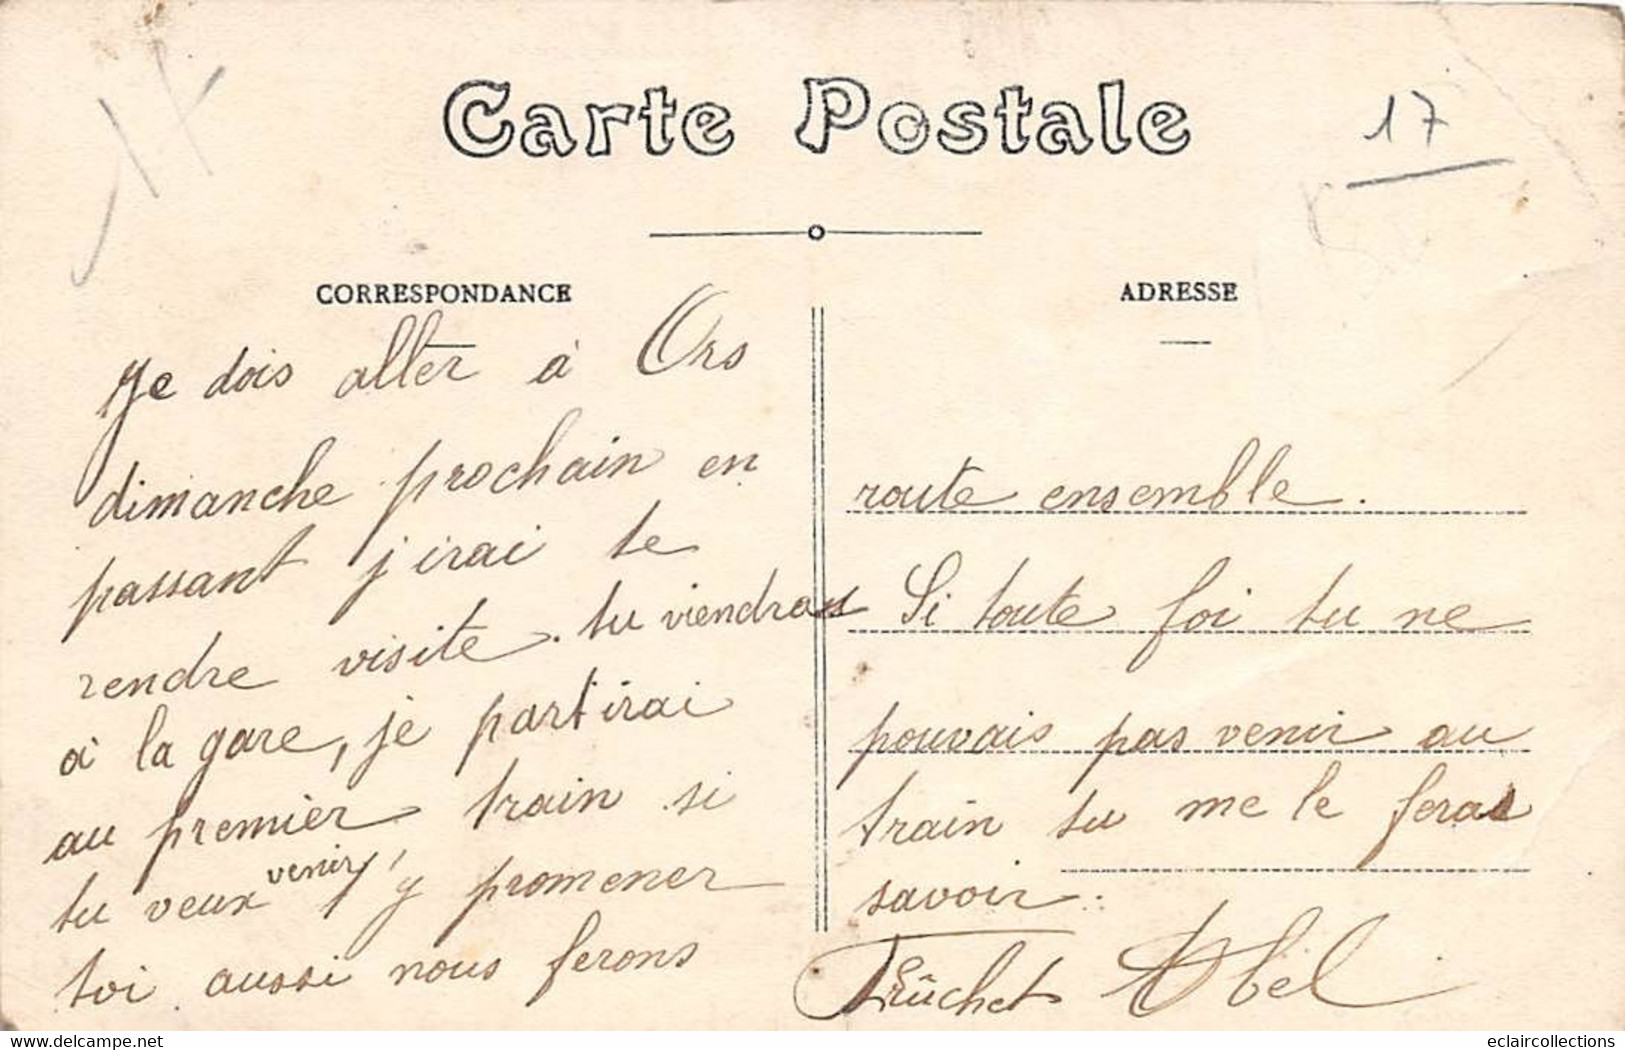 17
Carte Postale
17
CORRESPONDANCE
ADRESSE
Je dois aller à Ors
dimanche prochain en
passant j'irai te
rendre visite. tu viendras
à la gare, je partirai
au premier train si
tu veux venir t'y promener
toi aussi nous ferons
route ensemble.
Si toute foi tu ne
pouvais pas venir au
train tu me le feras
savoir.
Trûchet Abel
www.delcampe.net
eclaircollections